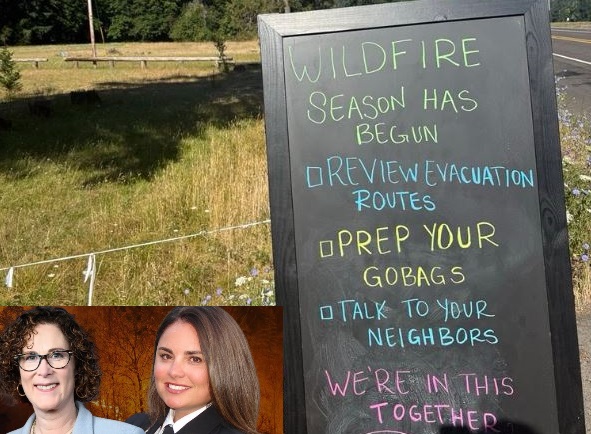 WILDFIRE
SEASON HAS
BEGUN
REVIEW EVACUATION
ROUTES
PREP YOUR
GOBAGS
TALK TO YOUR
NEIGHBORS
WE'RE IN THIS
TOGETHER